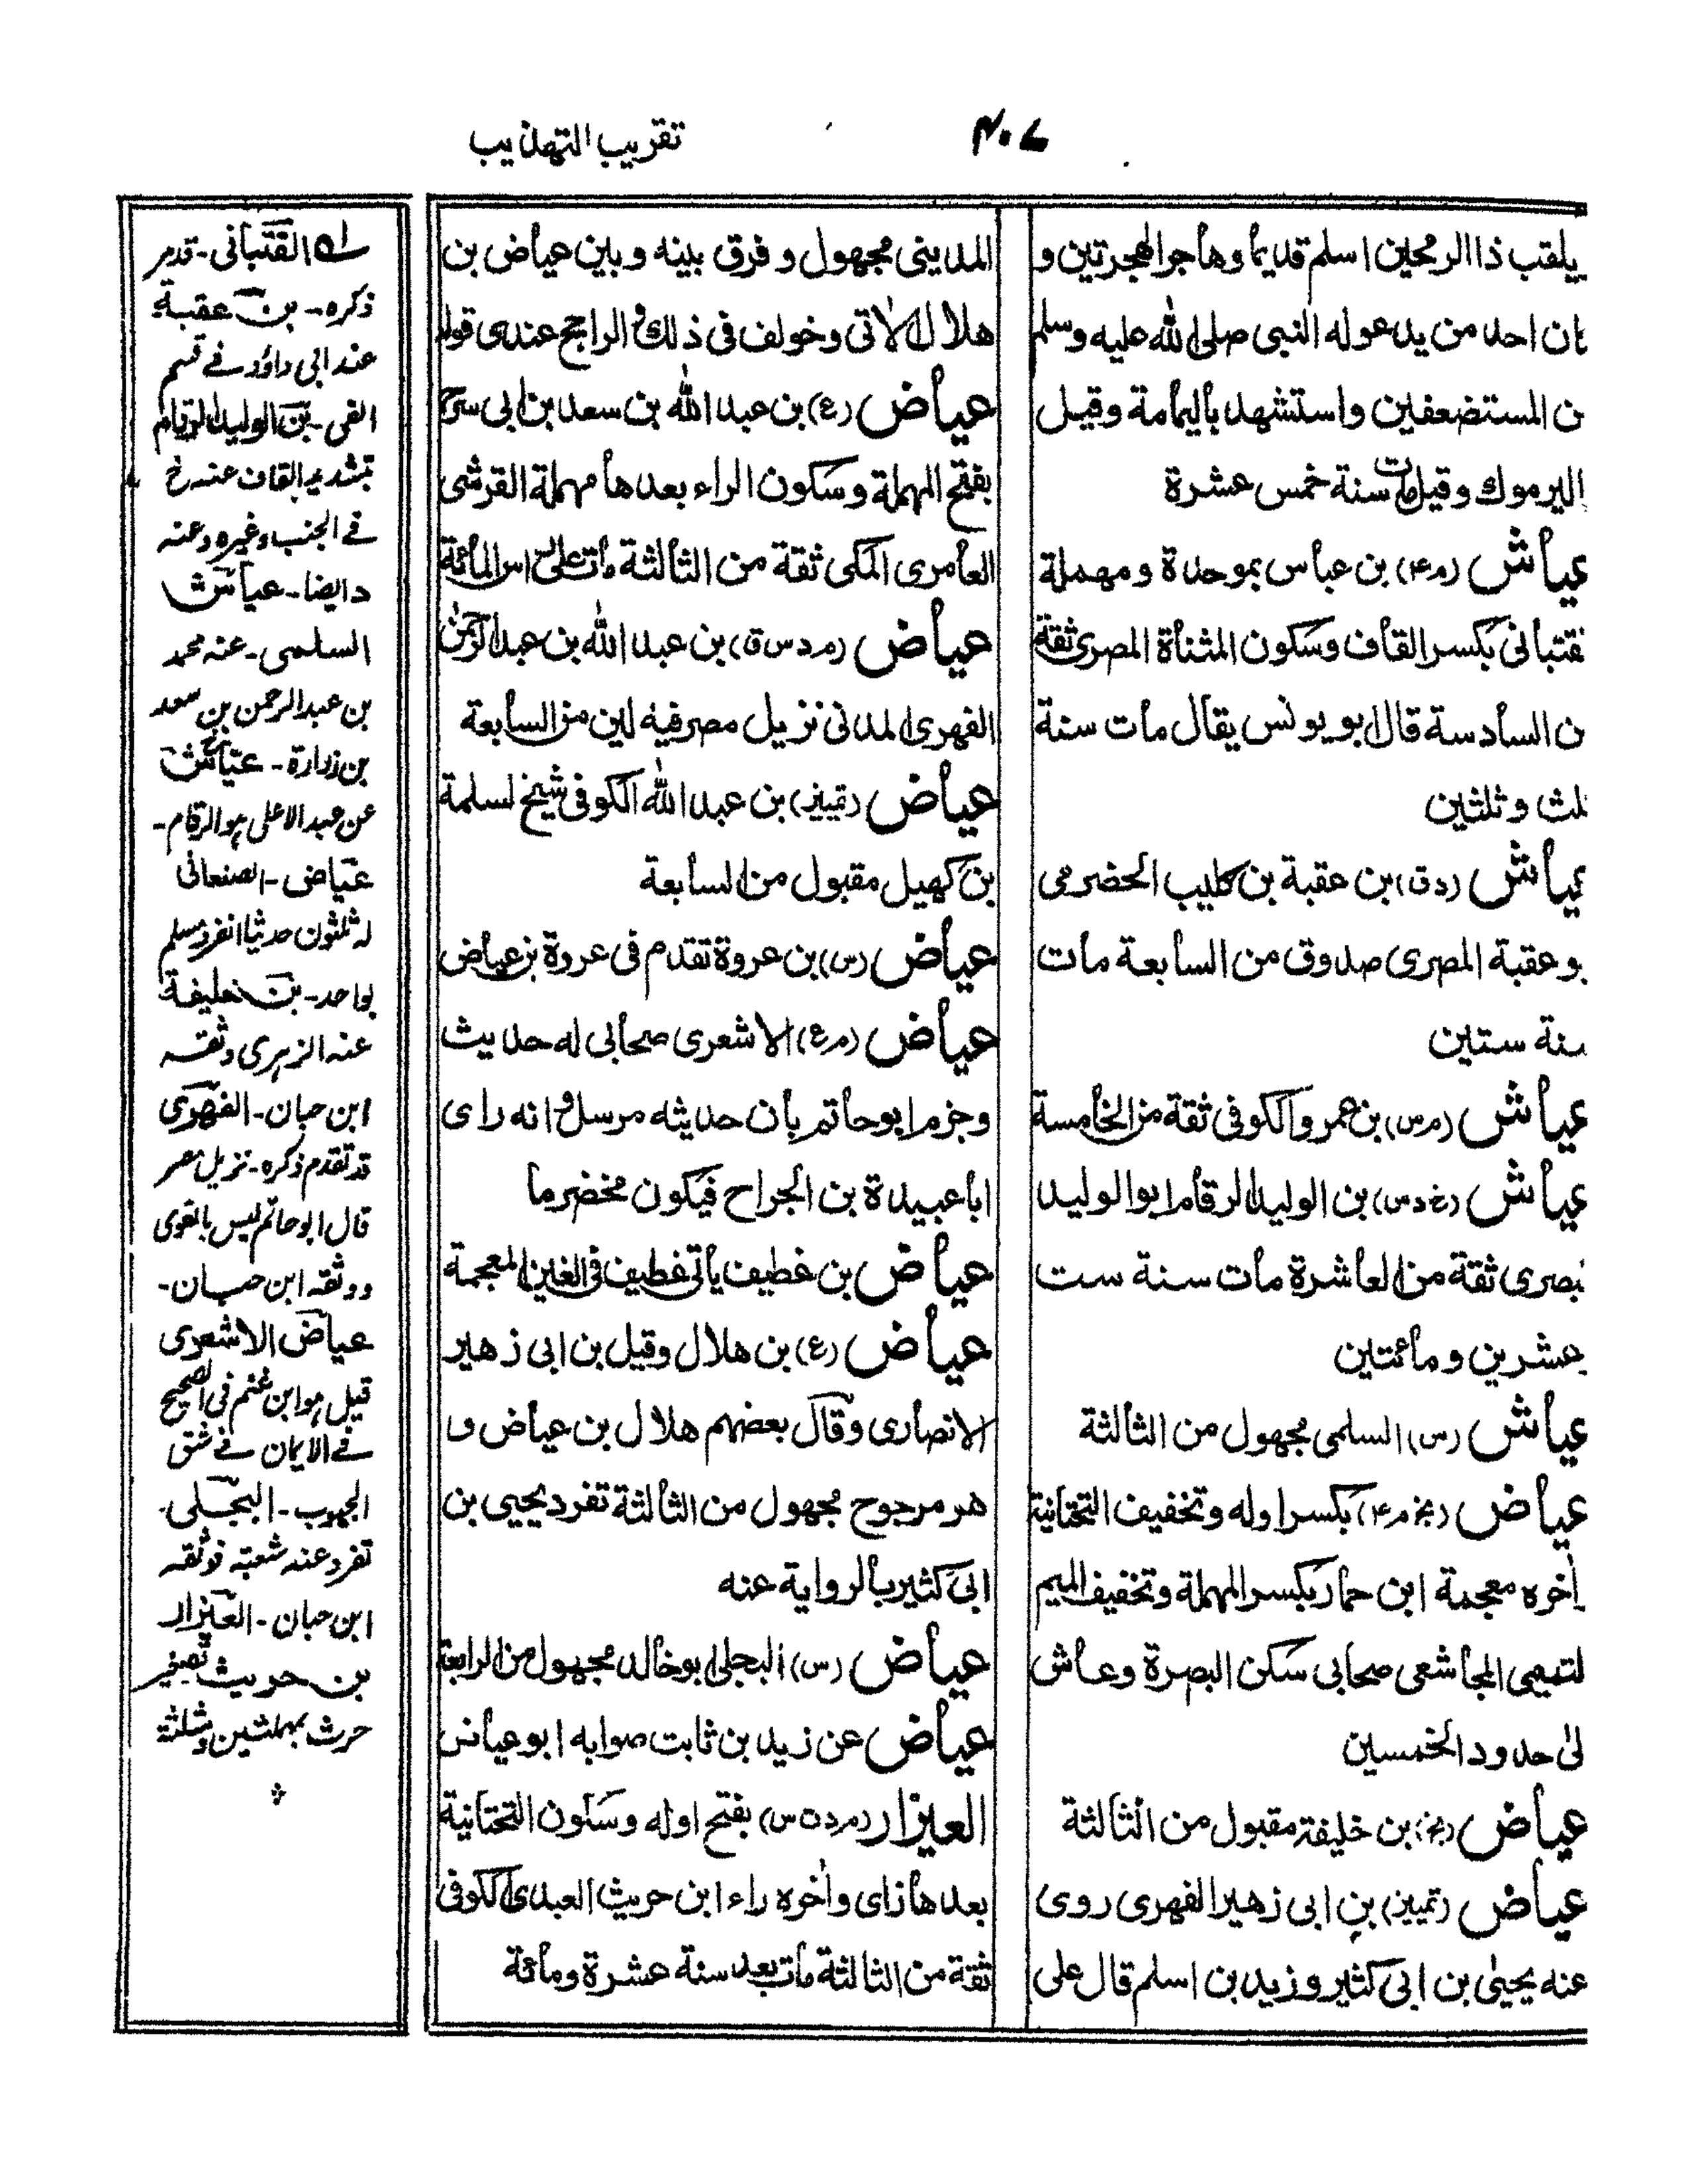 تقريب التهذيب
يلقب ذا الرمحين اسلم قديما وهاجر الهجرتين و
ان احد من يدعو له النبي صلى الله عليه وسلم
ن المستضعفين واستشهد باليمامة وقيل
اليرموك وقيل مات سنة خمس عشرة
عياش (م۴) بن عباس بموحدة ومهملة
قتباني بكسر القاف وسكون المثناة المصري ثقة
ن السادسة قال ابو يونس يقال مات سنة
لث وثلثين
عياش (د ق) بن عقبة بن كليب الحضرمي
بو عقبة المصري صدوق من السابعة مات
سنة ستين
عياش (م س) بن عمرو الكوفي ثقة من الخامسة
عياش (خ د س) بن الوليد الرقام ابو الوليد
بصري ثقة من العاشرة مات سنة ست
عشرين ومائتين
عياش (س) السلمي مجهول من الثالثة
عياض (بخ م ۴) بكسر اوله وتخفيف التحتانية
اخره معجمة ابن حمار بكسر المهملة وتخفيف الميم
لتميمي المجاشعي صحابي سكن البصرة وعاش
لى حدود الخمسين
عياض (بخ) بن خليفة مقبول من الثالثة
عياض (تمييز) بن ابي زهير الفهري روى
عنه يحيى بن ابي كثير وزيد بن اسلم قال علي
المديني مجهول وفرق بينه وبين عياض بن
هلال الاتي وخولف في ذلك والراجح عندي قوله
عياض (ع) بن عبد الله بن سعد بن ابي سرح
بفتح المهملة وسكون الراء بعدها مهملة القرشي
العامري المكي ثقة من الثالثة مات على راس المائة
عياض (م د س ق) بن عبد الله بن عبد الرحمن
الفهري المدني نزيل مصر فيه لين من السابعة
عياض (تمييز) بن عبد الله الكوفي شيخ لسلمة
بن كهيل مقبول من السابعة
عياض (س) بن عروة تقدم في عروة بن عياض
عياض (م ع) الاشعري صحابي له حديث
وجزم ابو حاتم بان حديثه مرسل وانه راى
ابا عبيدة بن الجراح فيكون مخضرما
عياض بن غطيف ياتي غطيف في الغين المعجمة
عياض (ع) بن هلال وقيل بن ابي زهير
الانصاري وقال بعضهم هلال بن عياض و
هو مرجوح مجهول من الثالثة تفرد يحيى بن
ابي كثير بالرواية عنه
عياض (س) البجلي ابو خالد مجهول من الرابعة
عياض عن زيد بن ثابت صوابه ابو عياض
العيزار (م د ت س) بفتح اوله وسكون التحتانية
بعدها زاى واخره راء ابن حريث العبدي الكوفي
ثقة من الثالثة مات بعد سنة عشرة ومائة
القتباني - قدم
ذكره - بن عقبة
عند ابي داؤد في قسم
الفي - بن الوليد الرقام
بتشديد القاف عنه خ
في الجنب وغيره وعنه
د ايضا - عياش
السلمي - عنه محمد
بن عبد الرحمن بن سعد
بن زرارة - عياش
عن عبد الاعلى هو الرقام -
عياض - الصنعاني
له ثلثون حديثا انفرد مسلم
بواحد - بن خليفة
عنه الزهري وثقه
ابن حبان - الفهري
قد تقدم ذكره - نزيل مصر
قال ابو حاتم ليس بالقوى
ووثقه ابن حبان -
عياض الاشعري
قيل هو ابن غنم في الصحيح
في الايمان في شق
الجيوب - البجلي -
تفرد عنه شعبة فوثقه
ابن حبان - العيزار
بن حريث تصغير
حرث بمهملتين ومثلثة